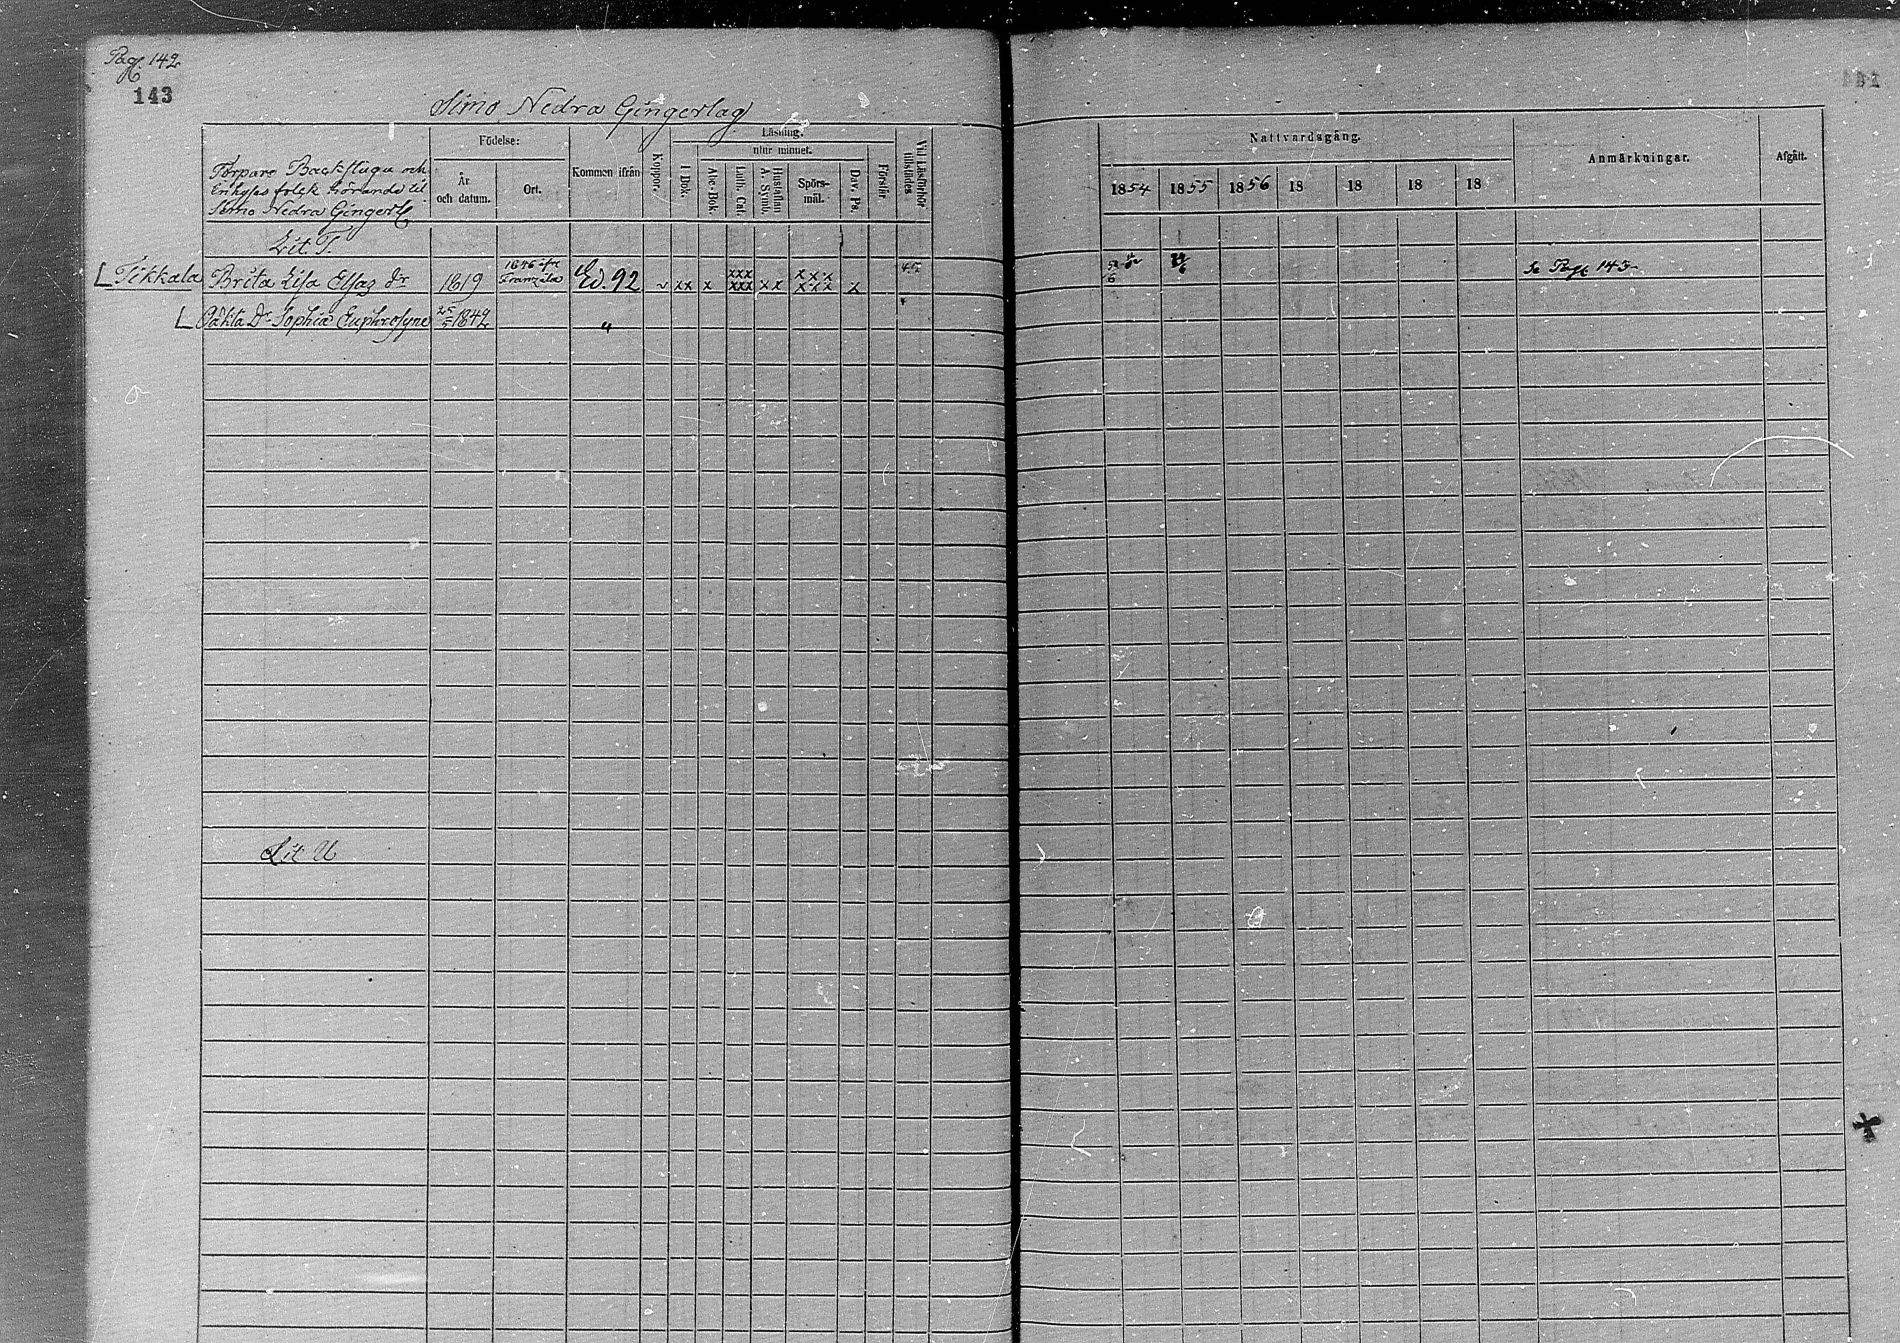 Pag. 142
143
Simo Nedra Gingerlag
Torpare Backstugu och
Enhyses folck hörande til
Simo Nedra Gingerl
Födelse:
År
och datum.
Ort.
Kommen ifrån
Koppor.
Läsning.
utur minnet.
I Bok.
Abc-Bok.
Luth. Cat.
Hustaflan
A. Symb.
Spörs-
mål.
Dav. Ps.
Förstår
Vid Läsförhör
tillstädes
Nattvardsgång.
1854 1855 1856 18 18 18 18
Anmärkningar.
Afgått.
Lit. T.
Tikkala Brita Lisa Eljas dr 1819 1846 ifr Frantzila Ed. 92 v xx x xxx xxx xx xxx xxx x Se Pag 143
Oäkta Dr Sophia Euphrosyne 1842 "
Lit U